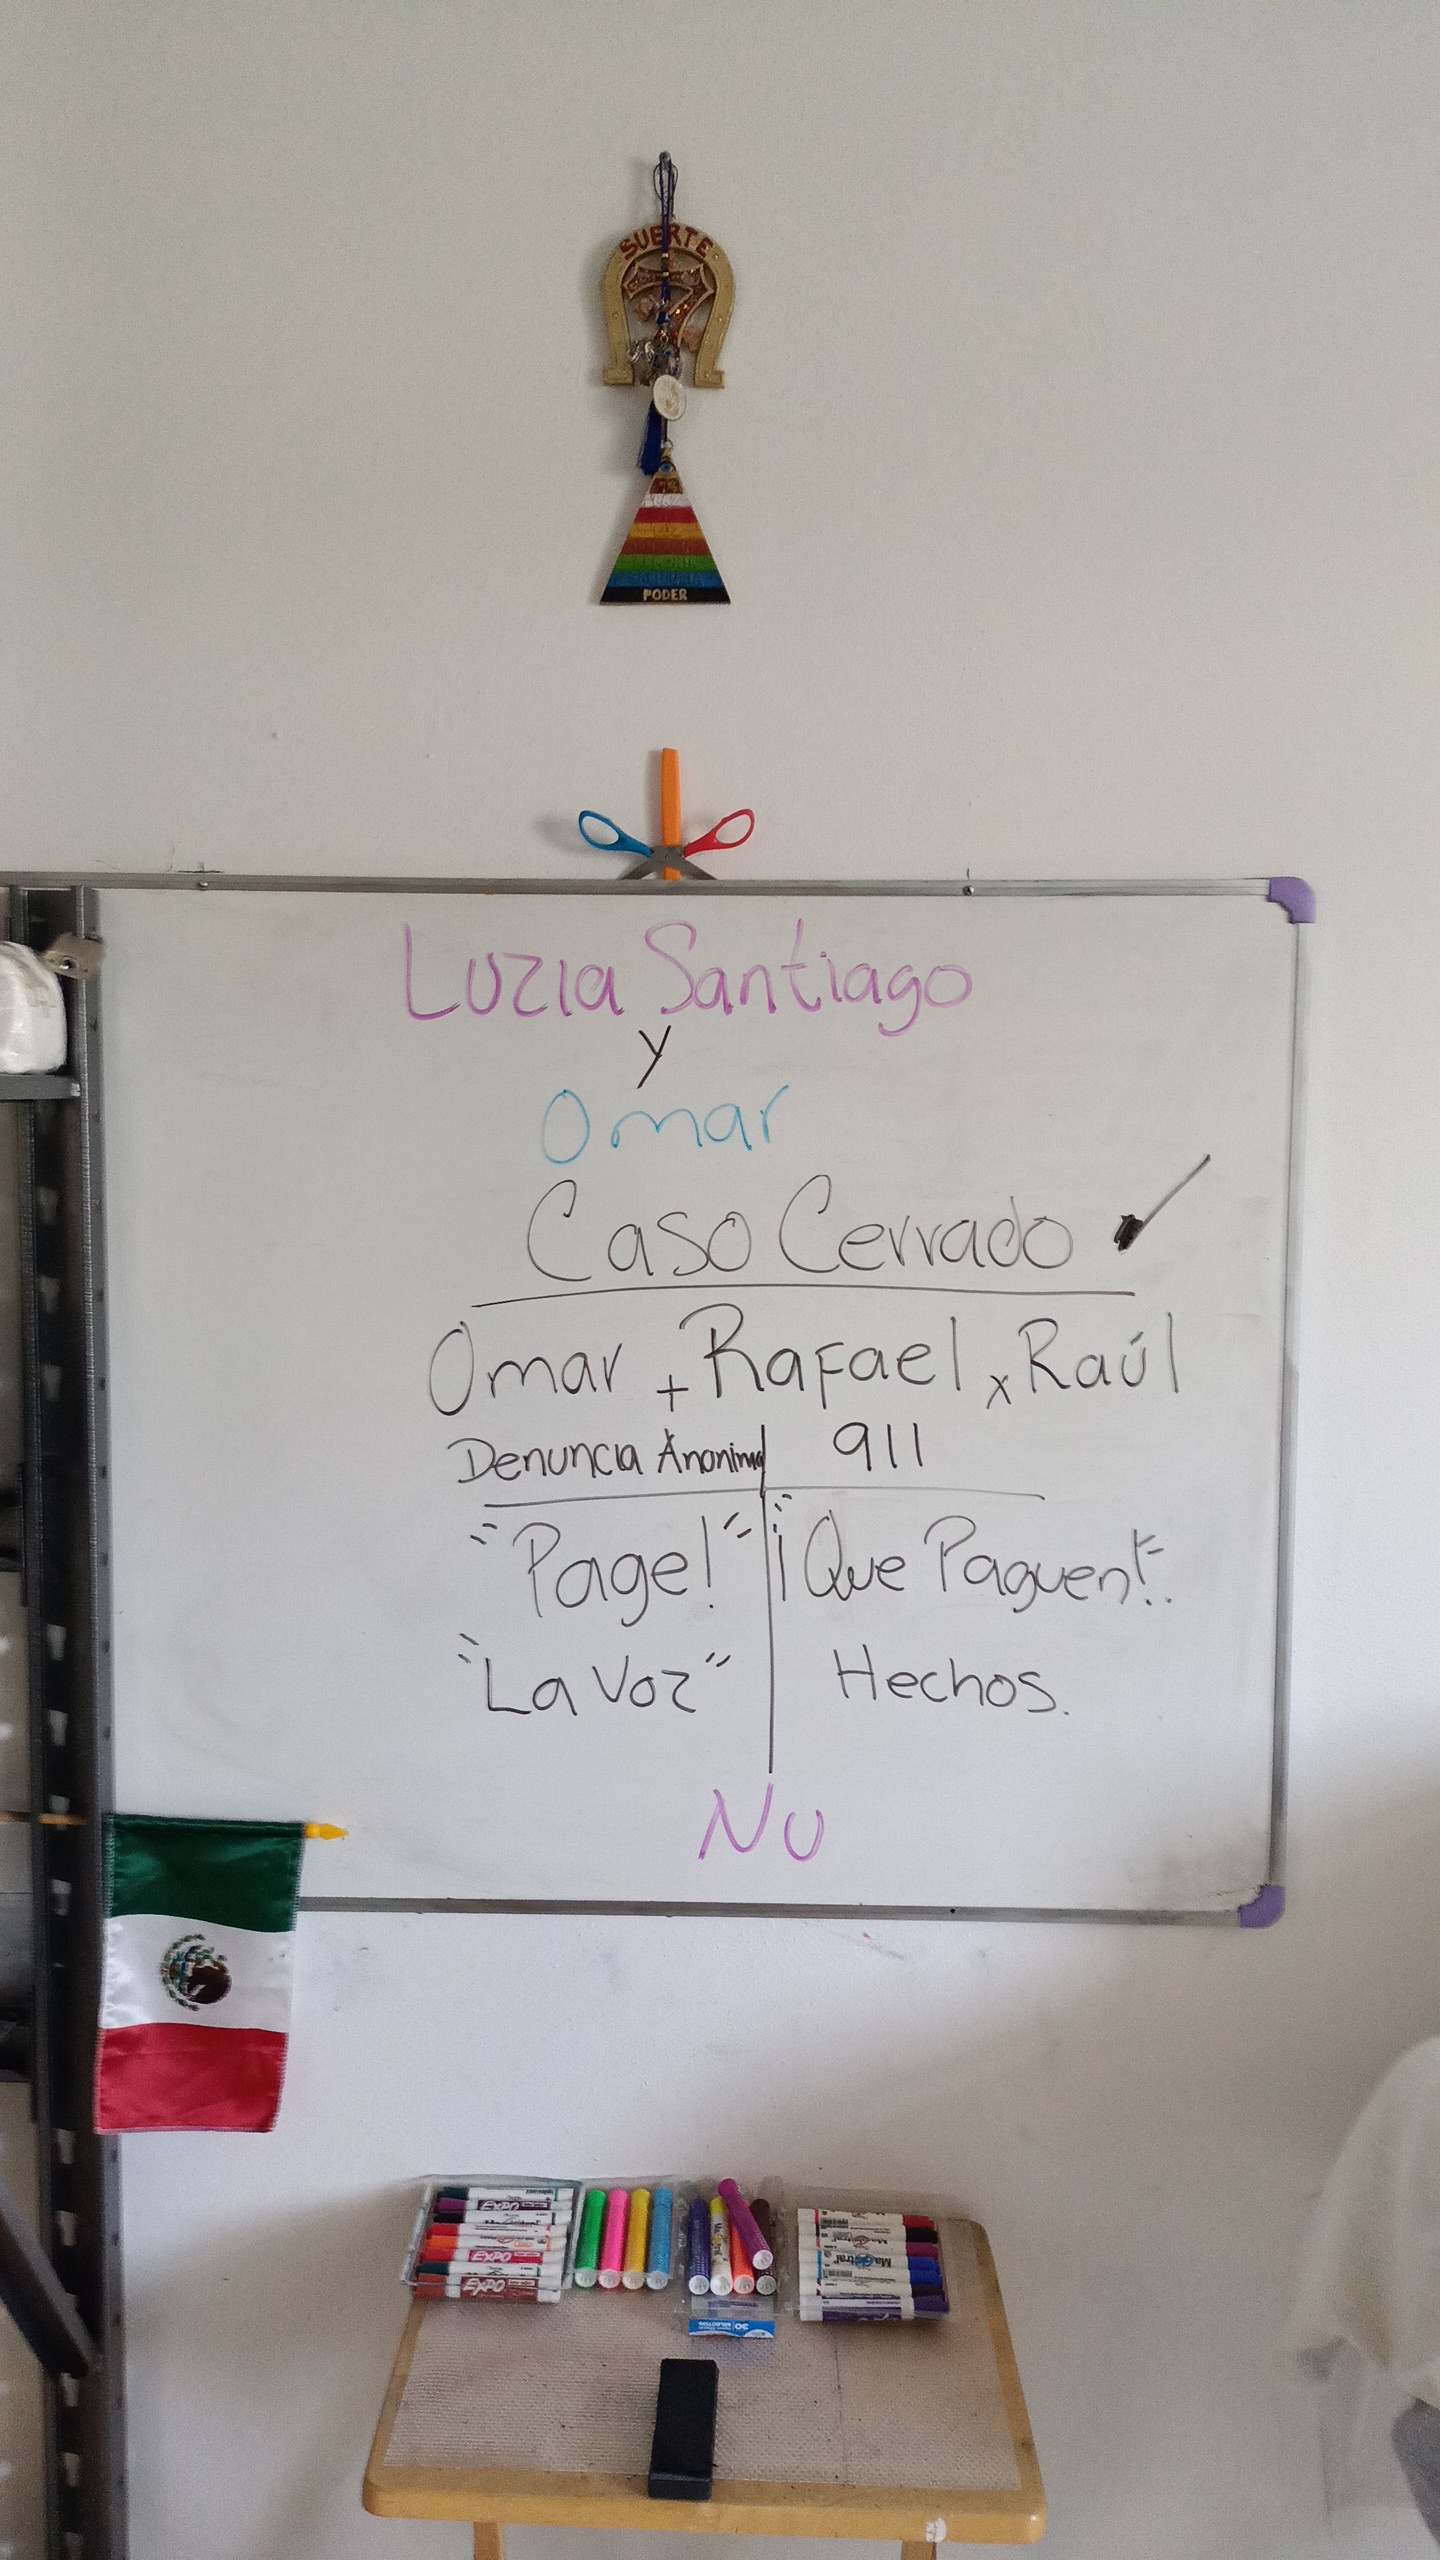 SUERTE
PODER
Luzia Santiago
y
Omar
Caso Cerrado ✓
Omar + Rafael x Raúl
Denuncia Anonima 911
"Page!" "¡Que Paguen!"
"La Voz" Hechos.
NU
EXPO
EXPO
EXPO
Magistral
30